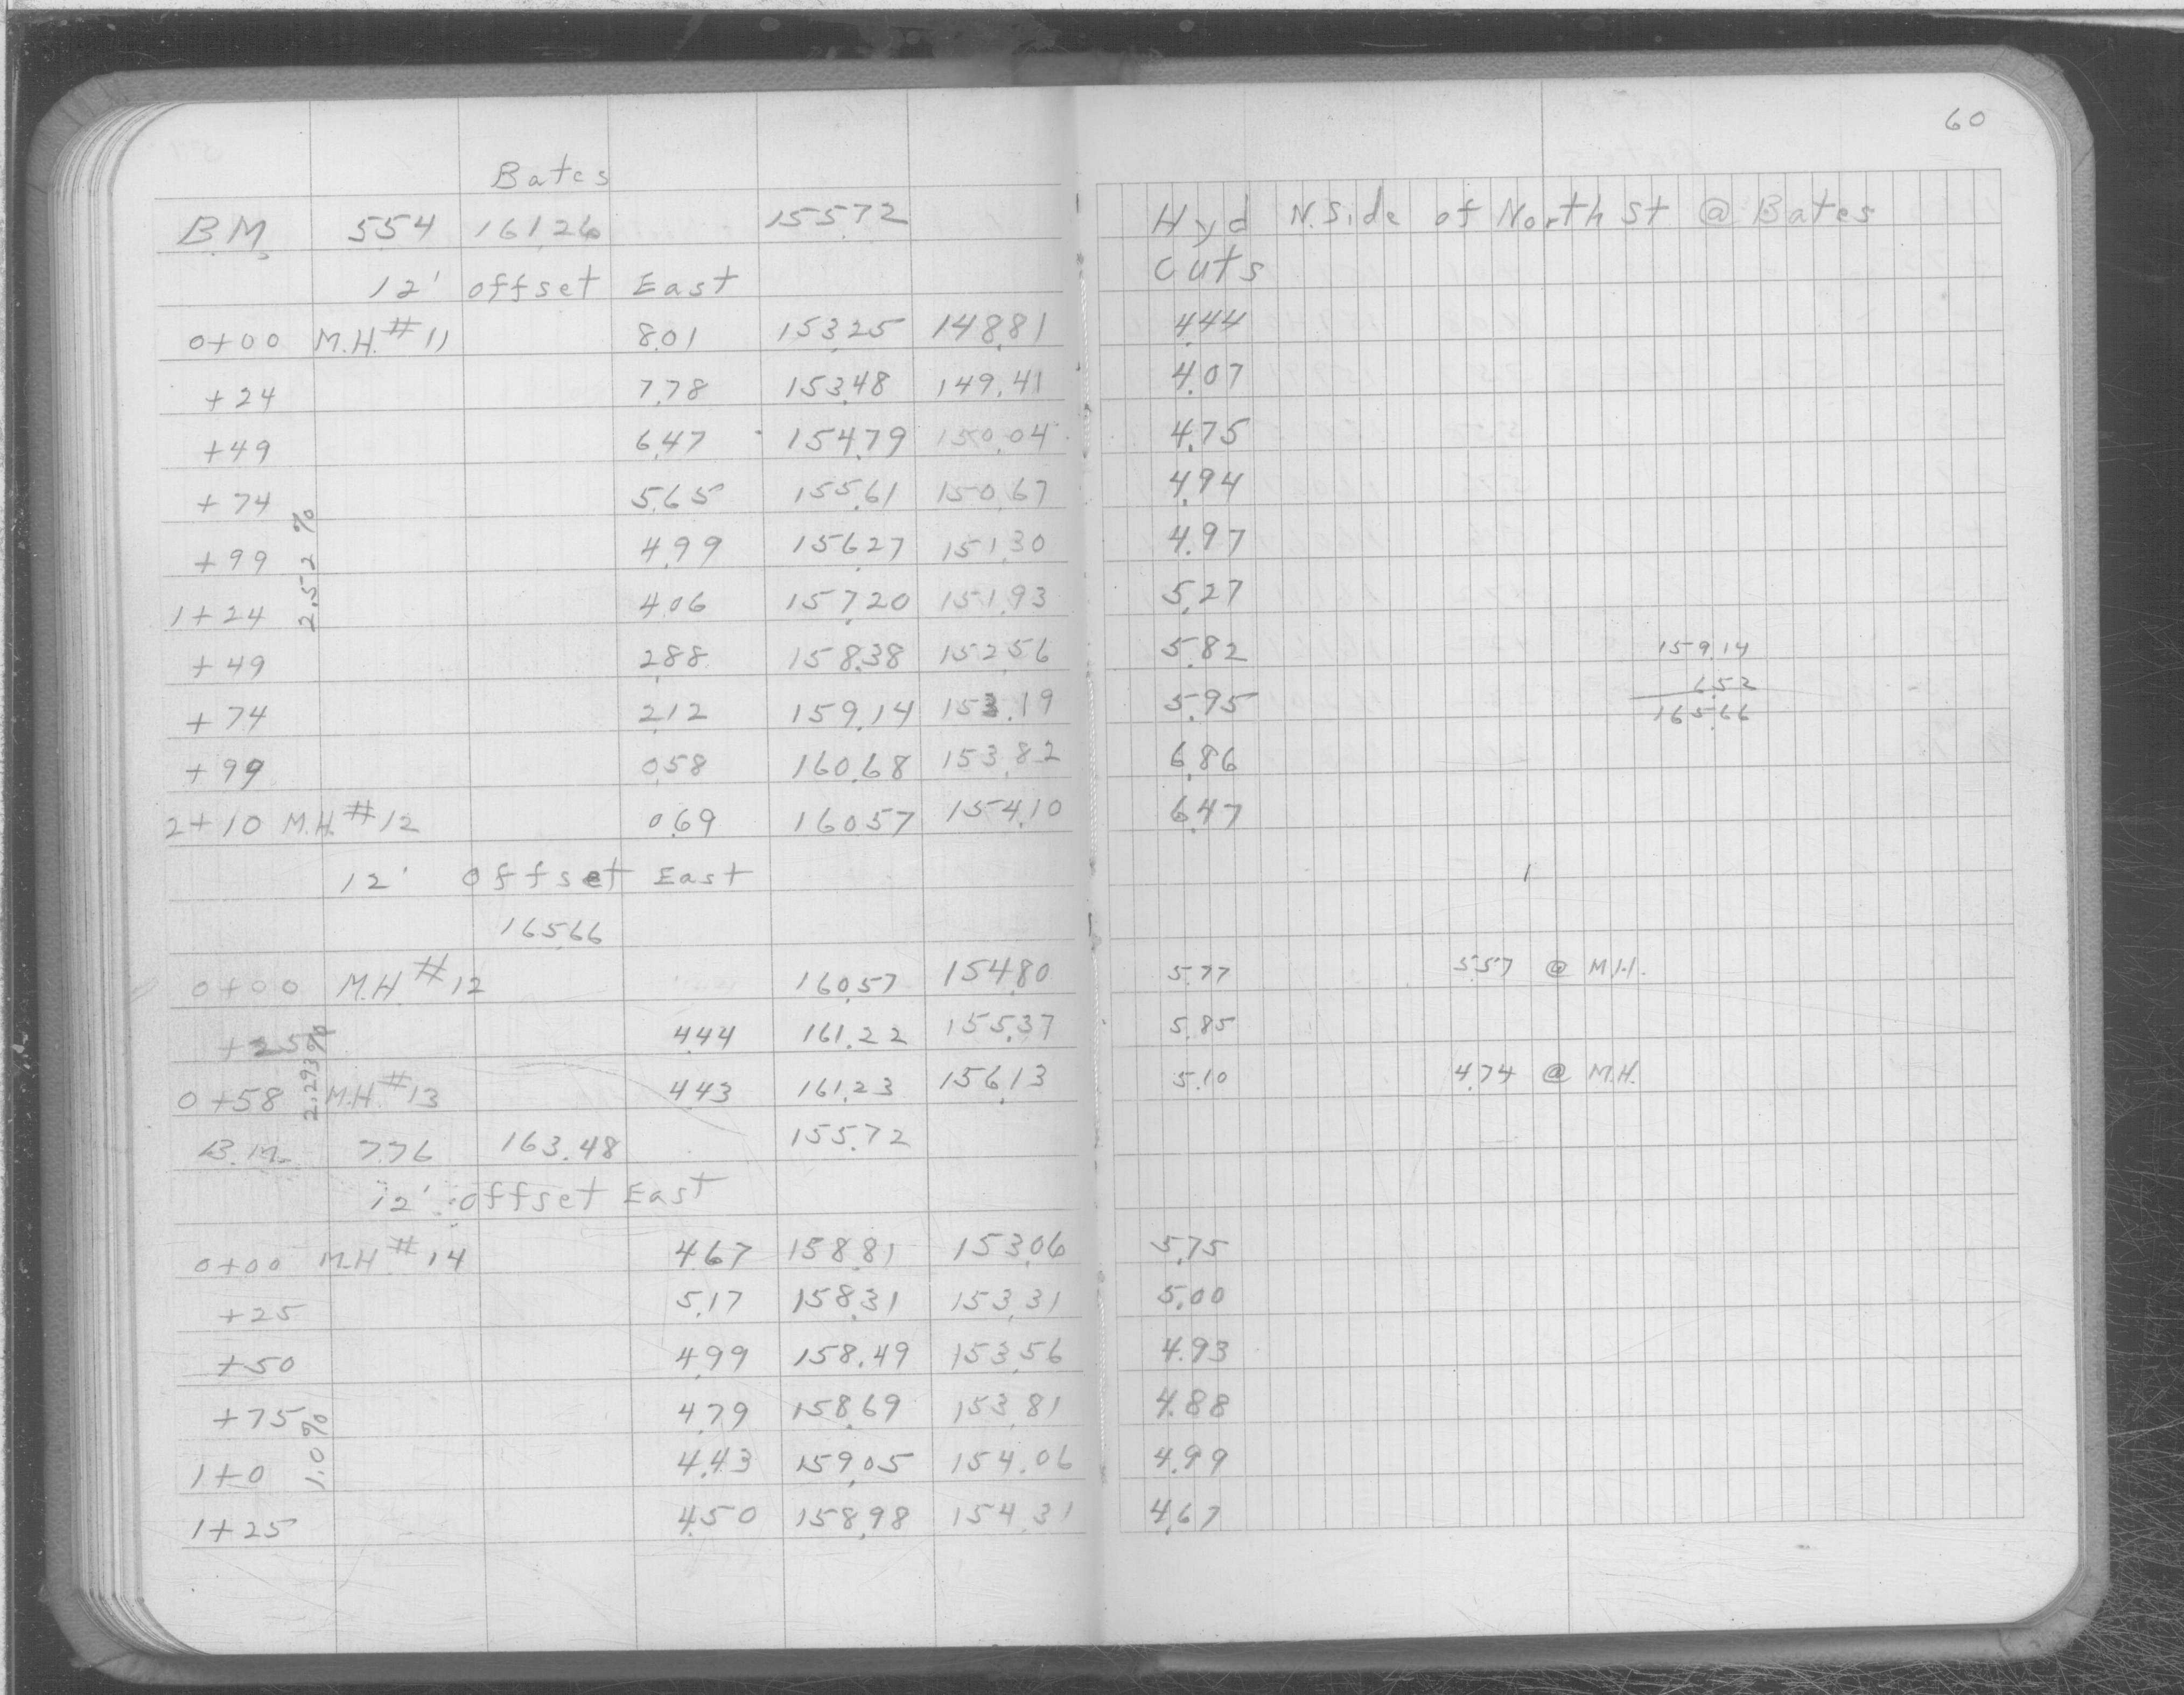 60
Bates
B.M. 5.54 161.26 155.72 Hyd N. Side of North St @ Bates
12' offset East Cuts
0+00 M.H. #11 8.01 153.25 148.81 4.44
+24 7.78 153.48 149.41 4.07
+49 6.47 154.79 150.04 4.75
+74 5.65 155.61 150.67 4.94
+99 4.99 156.27 151.30 4.97
1+24 4.06 157.20 151.93 5.27
+49 2.88 158.38 152.56 5.82 159.14
+74 2.12 159.14 153.19 5.95 6.52
165.66
+99 0.58 160.68 153.82 6.86
2+10 M.H. #12 0.69 160.57 154.10 6.47
2.52 %
12' offset East
165.66
0+00 M.H. #12 160.57 154.80 5.77 5.57 @ M.H.
+25 4.44 161.22 155.37 5.85
0+58 M.H. #13 4.43 161.23 156.13 5.10 4.74 @ M.H.
2.293%
B.M. 7.76 163.48 155.72
12' offset East
0+00 M.H #14 4.67 158.81 153.06 5.75
+25 5.17 158.31 153.31 5.00
+50 4.99 158.49 153.56 4.93
+75 4.79 158.69 153.81 4.88
1+0 4.43 159.05 154.06 4.99
1+25 4.50 158.98 154.31 4.67
1.0%